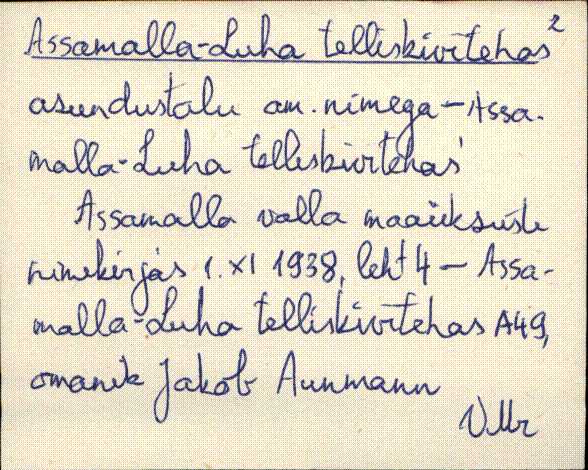 Assamalla-Luha telliskivitehas²
asundustalu am. nimega – Assa-
malla-Luha telliskivitehas
Assamalla valla maaüksuste
nimekirjas 1. XI 1938, leht 4 – Assa-
malla-Luha telliskivitehas A49,
omanik Jakob Aunmann
VMr